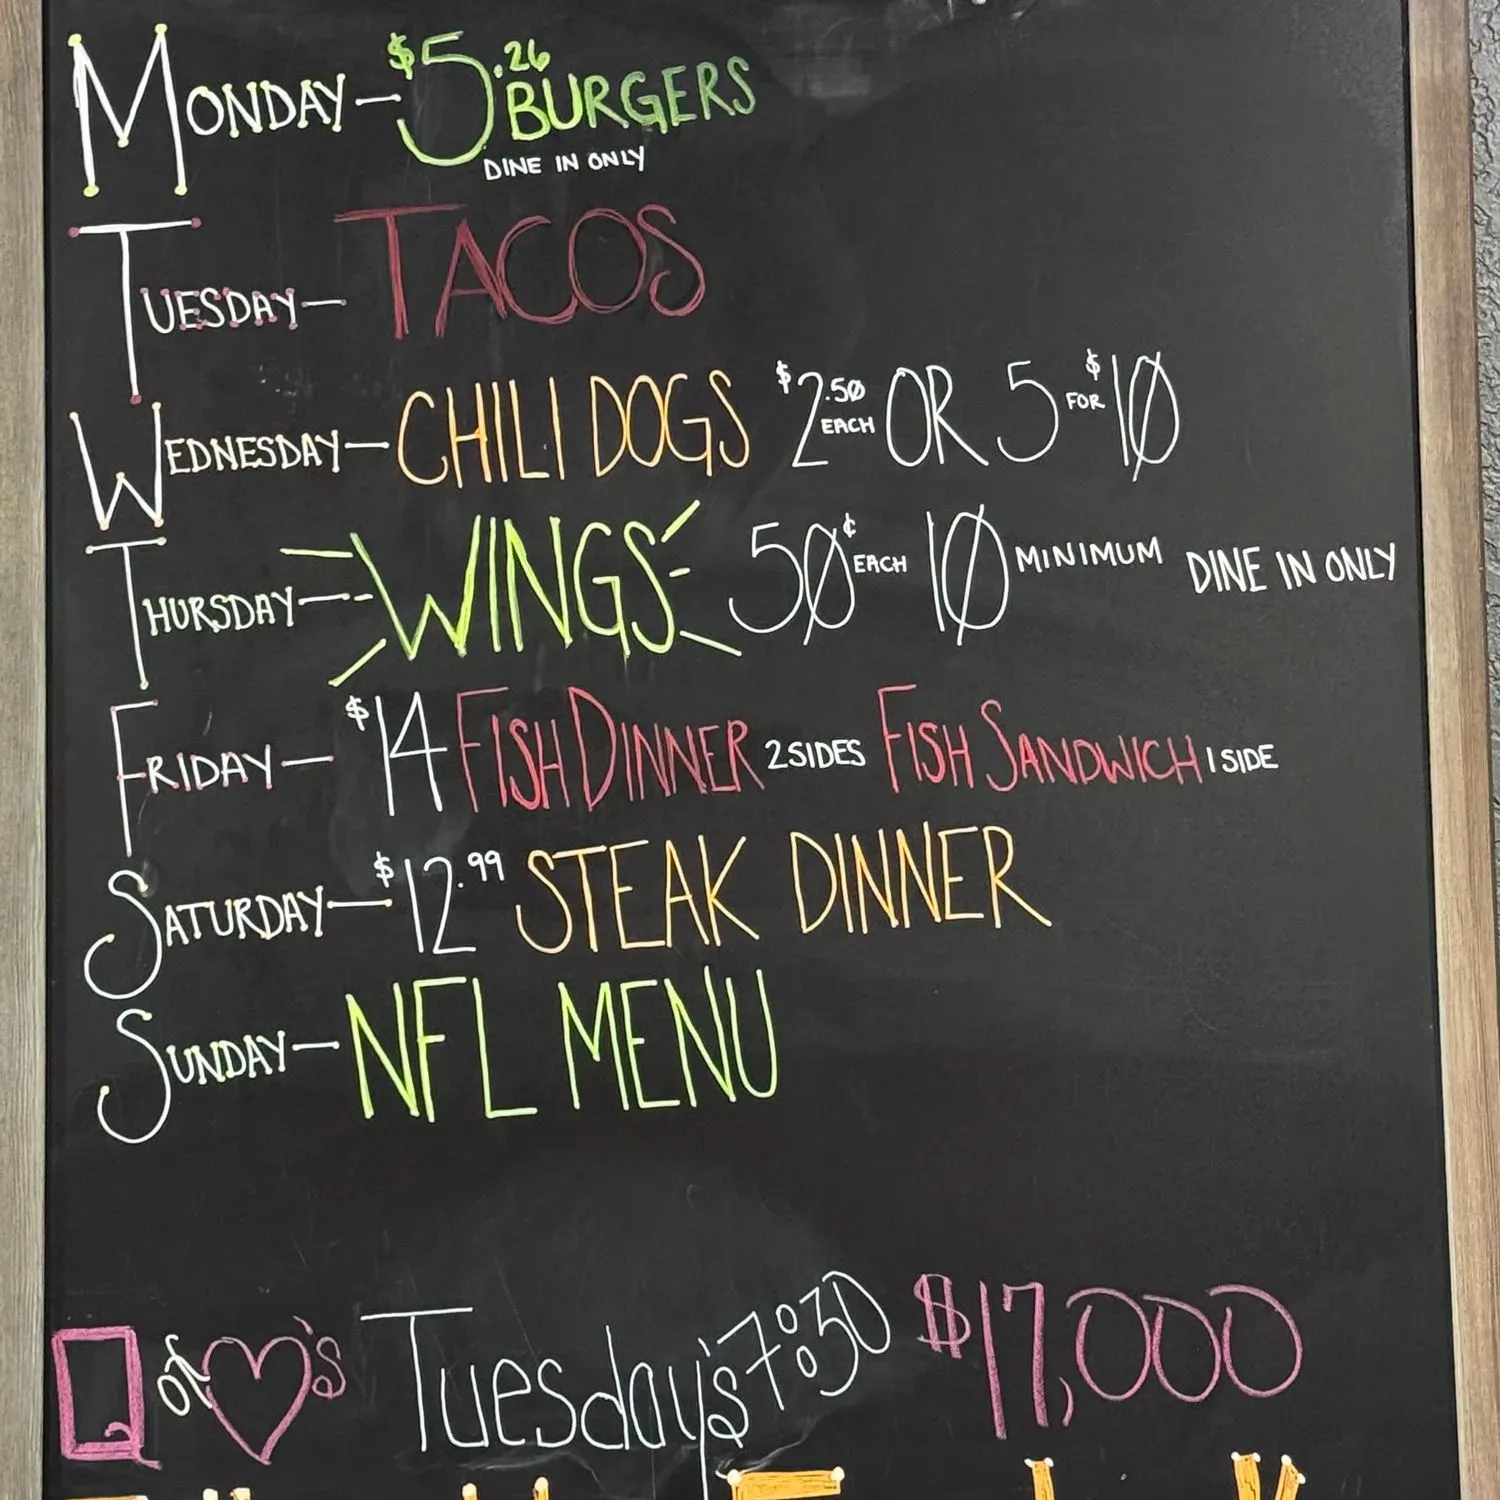 MONDAY - $5.26 BURGERS
DINE IN ONLY
TUESDAY - TACOS
WEDNESDAY - CHILI DOGS $2.50 EACH OR 5 FOR $10
THURSDAY - WINGS 50¢ EACH 10 MINIMUM DINE IN ONLY
FRIDAY - $14 FISH DINNER 2 SIDES FISH SANDWICH 1 SIDE
SATURDAY - $12.99 STEAK DINNER
SUNDAY - NFL MENU
Q of ♡'s Tuesday's 7:30 $17,000